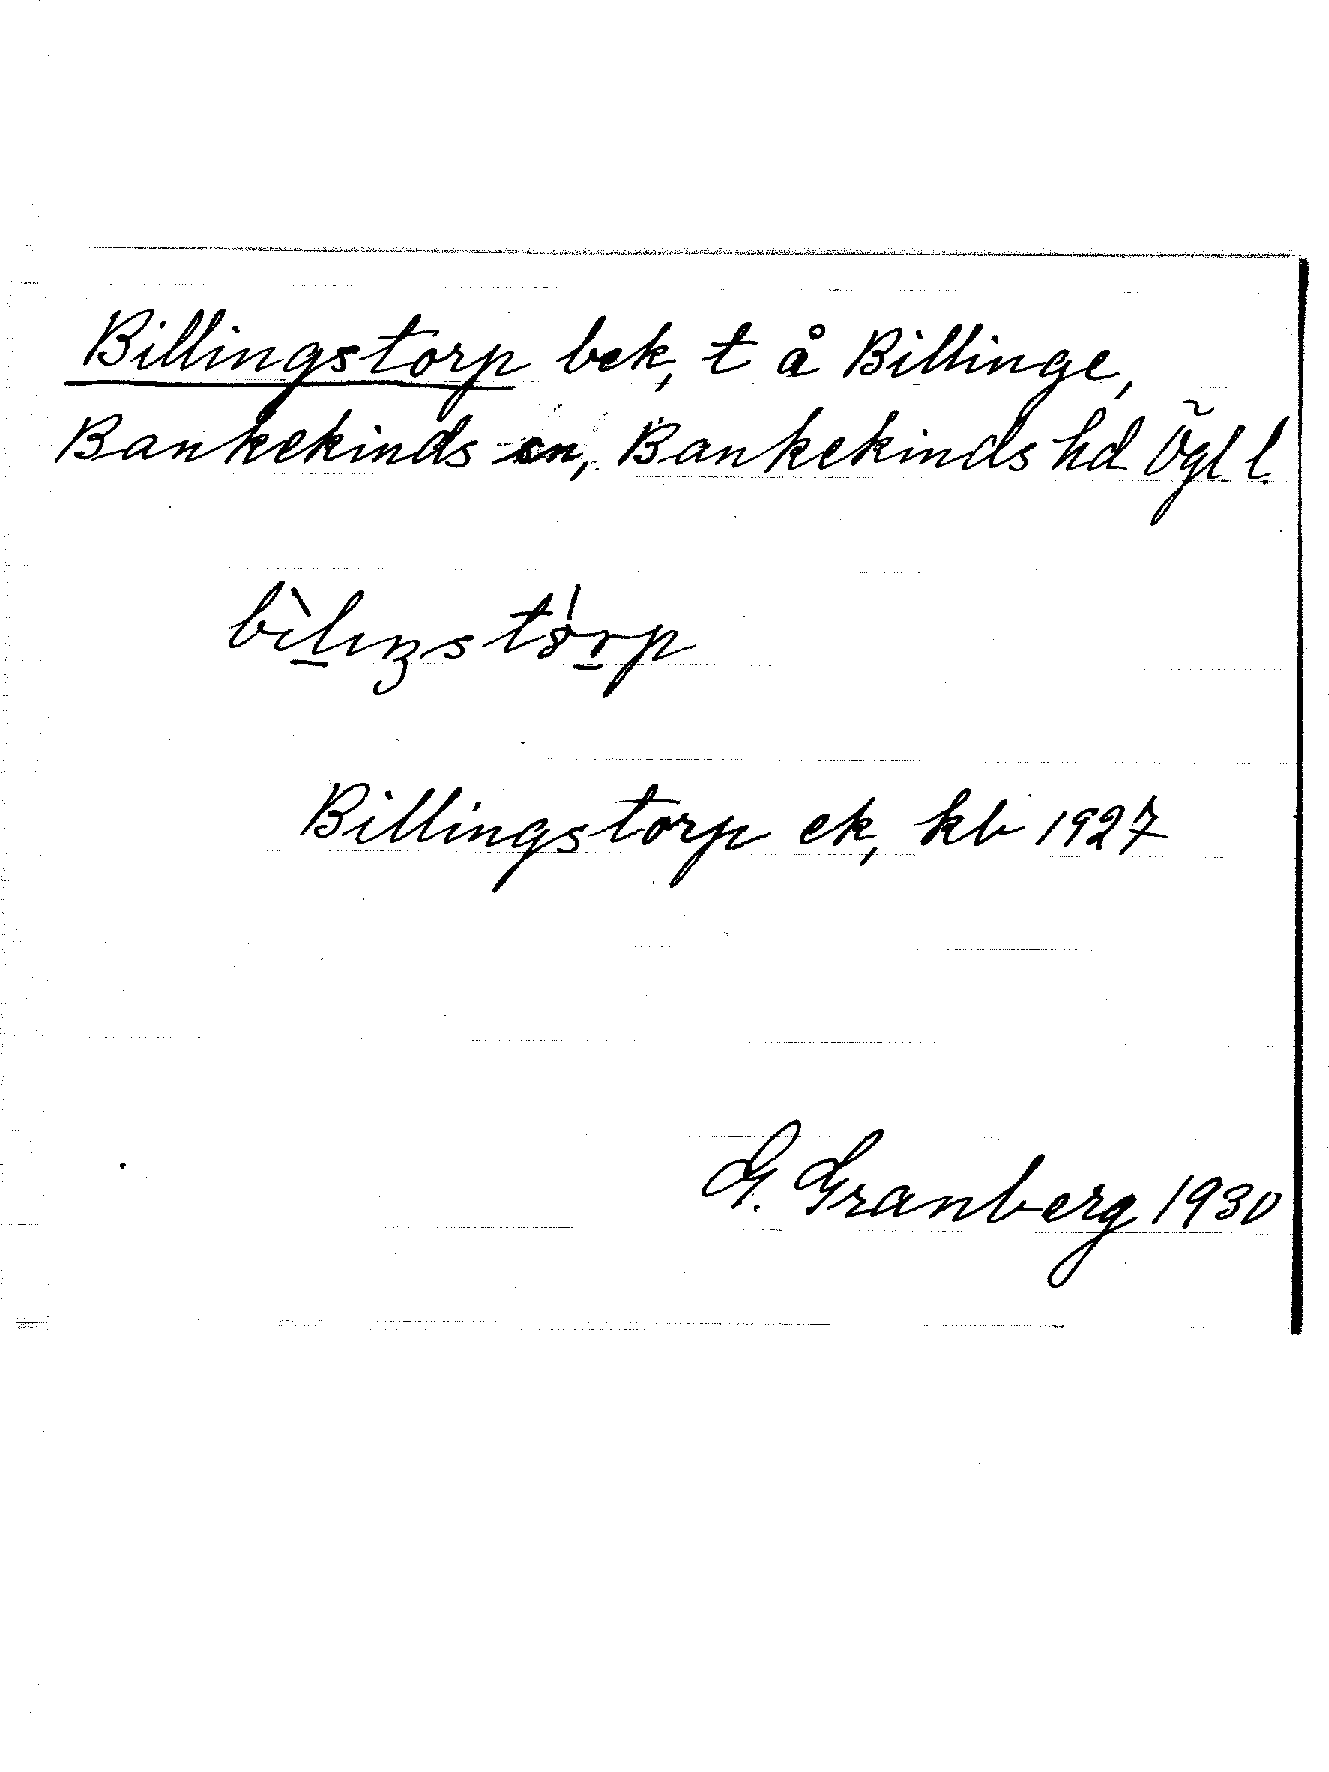 Billingstorp bek, t å Billinge,
Bankekinds sn, Bankekinds hd Ögl l.
bìlıŋstórp
Billingstorp ek, kb 1927
G. Granberg 1930